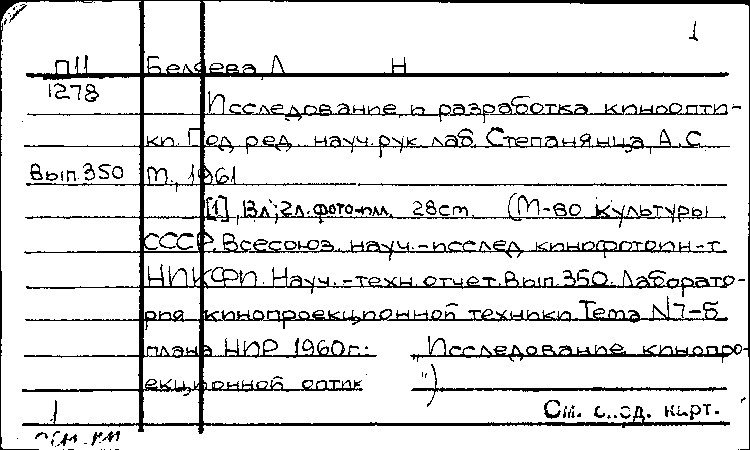 1
П11 Беляева, Л Н
1278
Исследование и разработка кинооптики-
ки. Под ред. науч. рук. лаб. Степанянца, А.С
Вып. 350 М., 1961
[1], 13л.; 2л. фото-илл. 28см. (М-во культуры
СССР. Всесоюз. науч.-исслед кинофотоин-т.
НИКФИ. Науч.-техн. отчет. Вып. 350. Лаборато-
рия кинопроекционной техники. Тема N7-б
плана НИР 1960г.: „Исследование кинопро-
екционной оптик ")
См. карт.
1